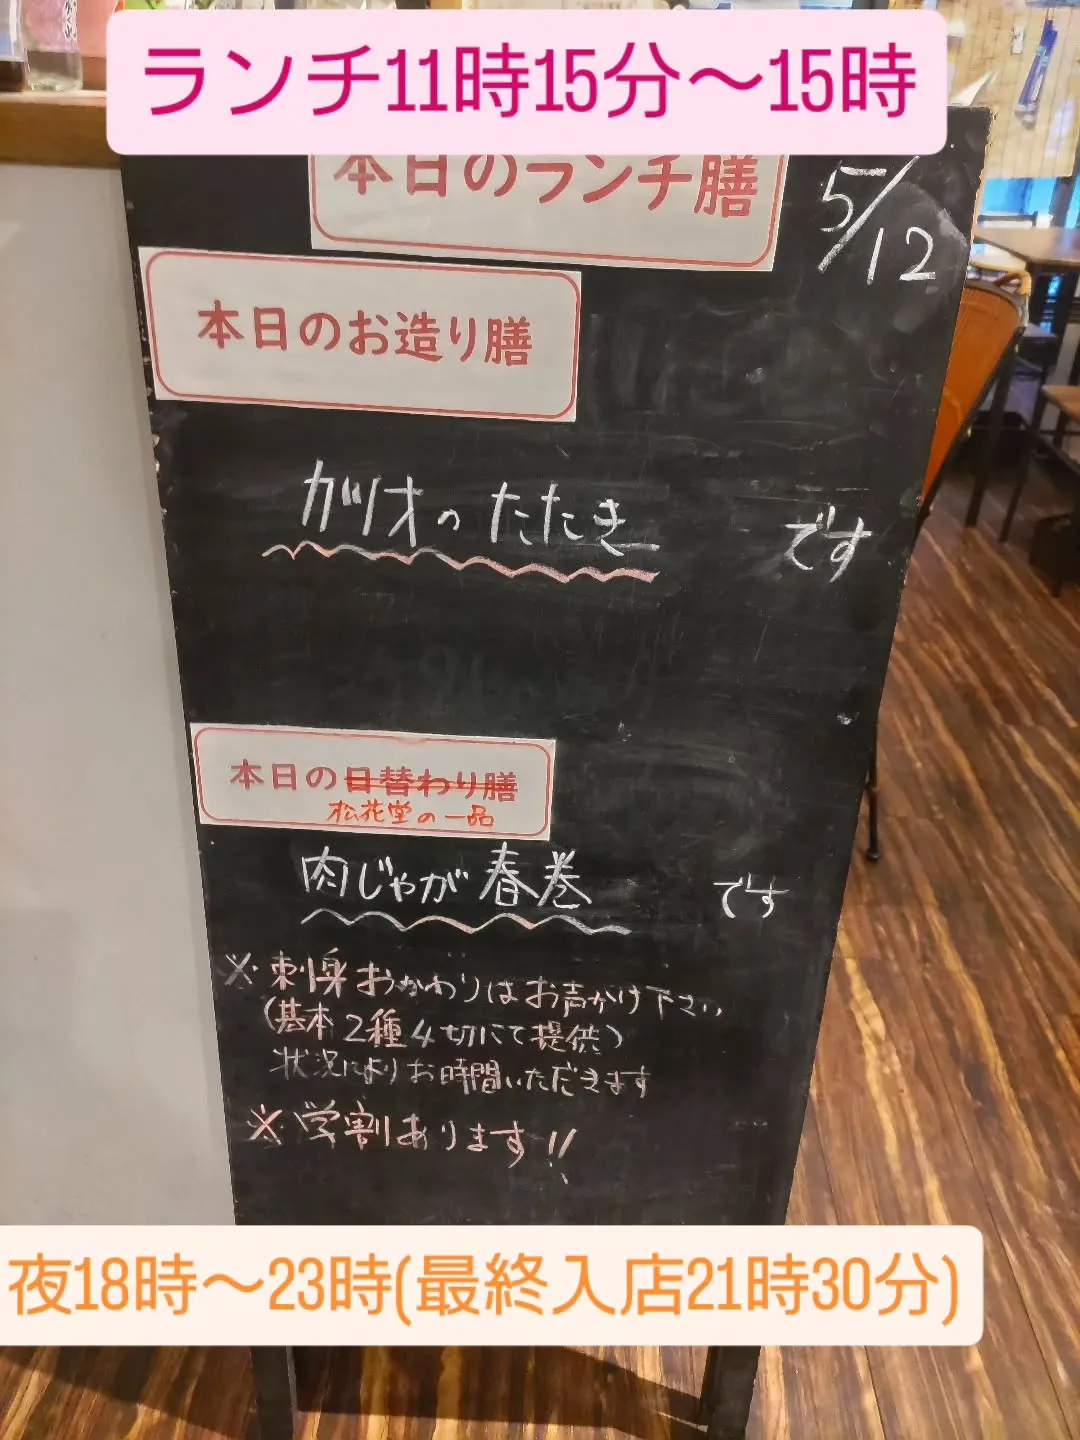 ランチ11時15分～15時
本日のランチ膳
5/12
本日のお造り膳
カツオのたたき です
本日の日替わり膳
松花堂の一品
肉じゃが春巻 です
※刺身おかわりはお声かけ下さい
(基本2種4切にて提供)
状況によりお時間いただきます
※学割あります!!
夜18時～23時(最終入店21時30分)